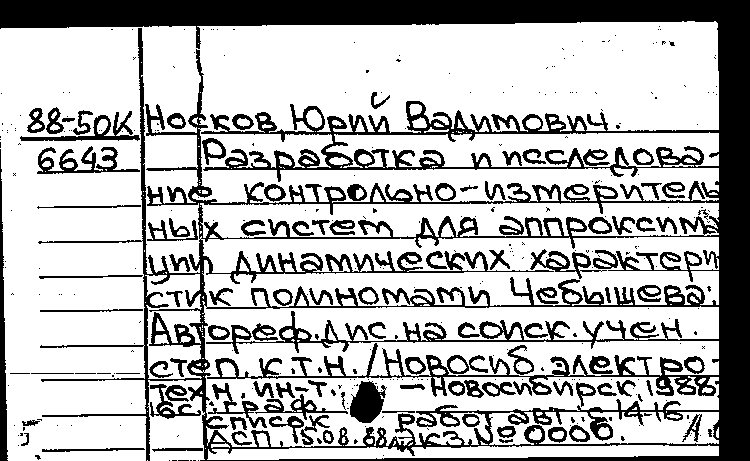 88-50К Носков, Юрий Вадимович.
6643 Разработка и исследова-
ние контрольно-измеритель
ных систем для аппроксима
ции динамических характери
стик полиномами Чебышева:
Автореф. дис. на соиск. учен.
степ. к.т.н. / Новосиб. электро-
техн. ин-т. — Новосибирск, 1988
16с.: граф.
список работ авт.: с. 14-16.
ДСП. 15.08.88 экз. № 0006.